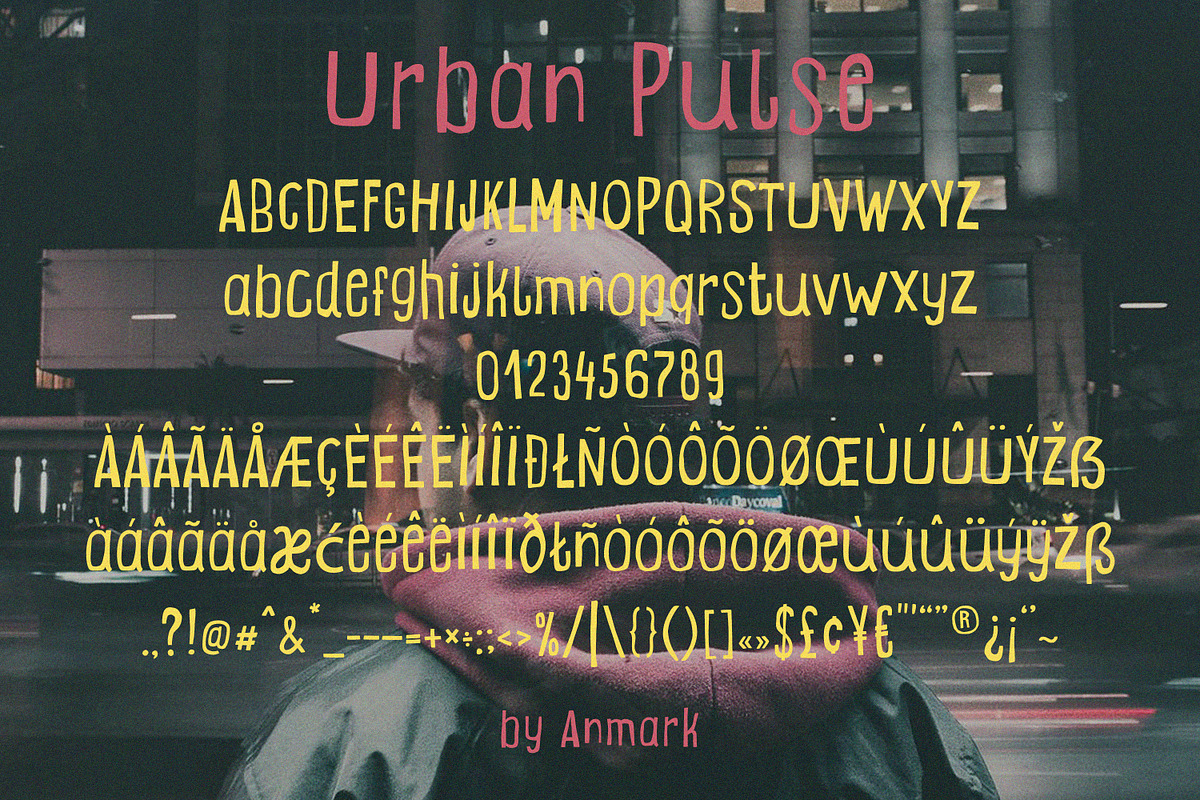 Urban Pulse
ABCDEFGHIJKLMNOPQRSTUVWXYZ
abcdefghijklmnopqrstuvwxyz
0123456789
ÀÁÂÃÄÅÆÇÈÉÊËÌÍÎÏÐŁÑÒÓÔÕÖØŒÙÚÛÜÝŽß
àáâãäåæćèéêëìíîïðłñòóôõöøœùúûüýÿžß
.,?!@#^&*_-–—=+×÷:;<>%/|\{}()[]«»$£¢¥€"'“”®¿¡‘’~
Daycoval
by Anmark